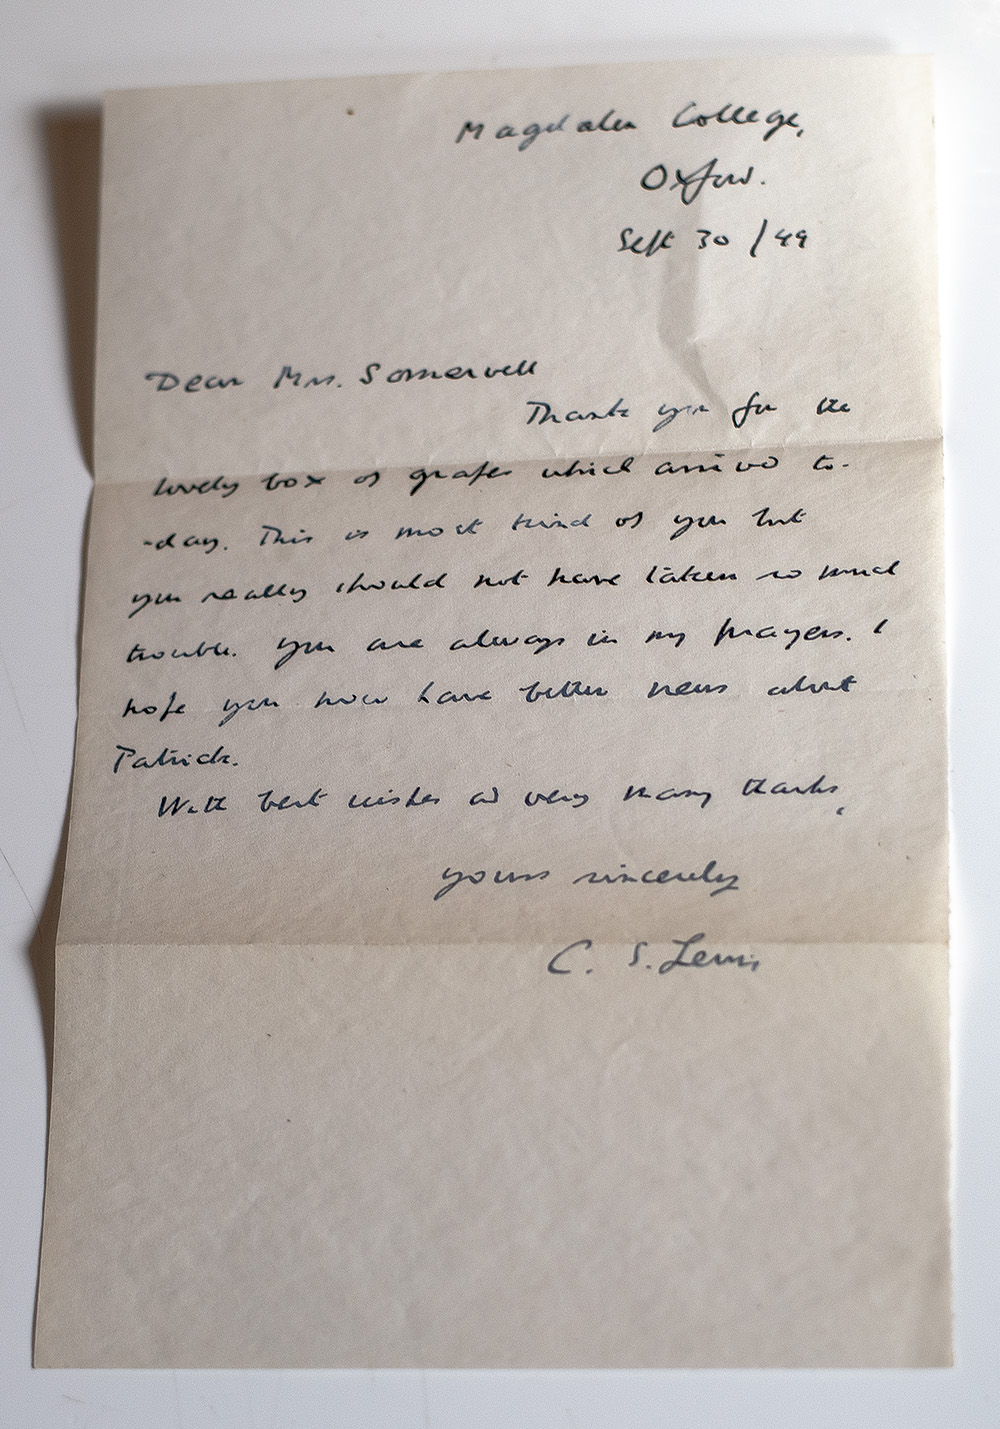 Magdalen College,
Oxford.
Sept 30 /49
Dear Mrs. Somervell
Thank you for the
lovely box of grapes which arrived to-
-day. This is most kind of you but
you really should not have taken so much
trouble. You are always in my prayers. I
hope you now have better news about
Patrick.
With best wishes and very many thanks,
yours sincerely
C. S. Lewis